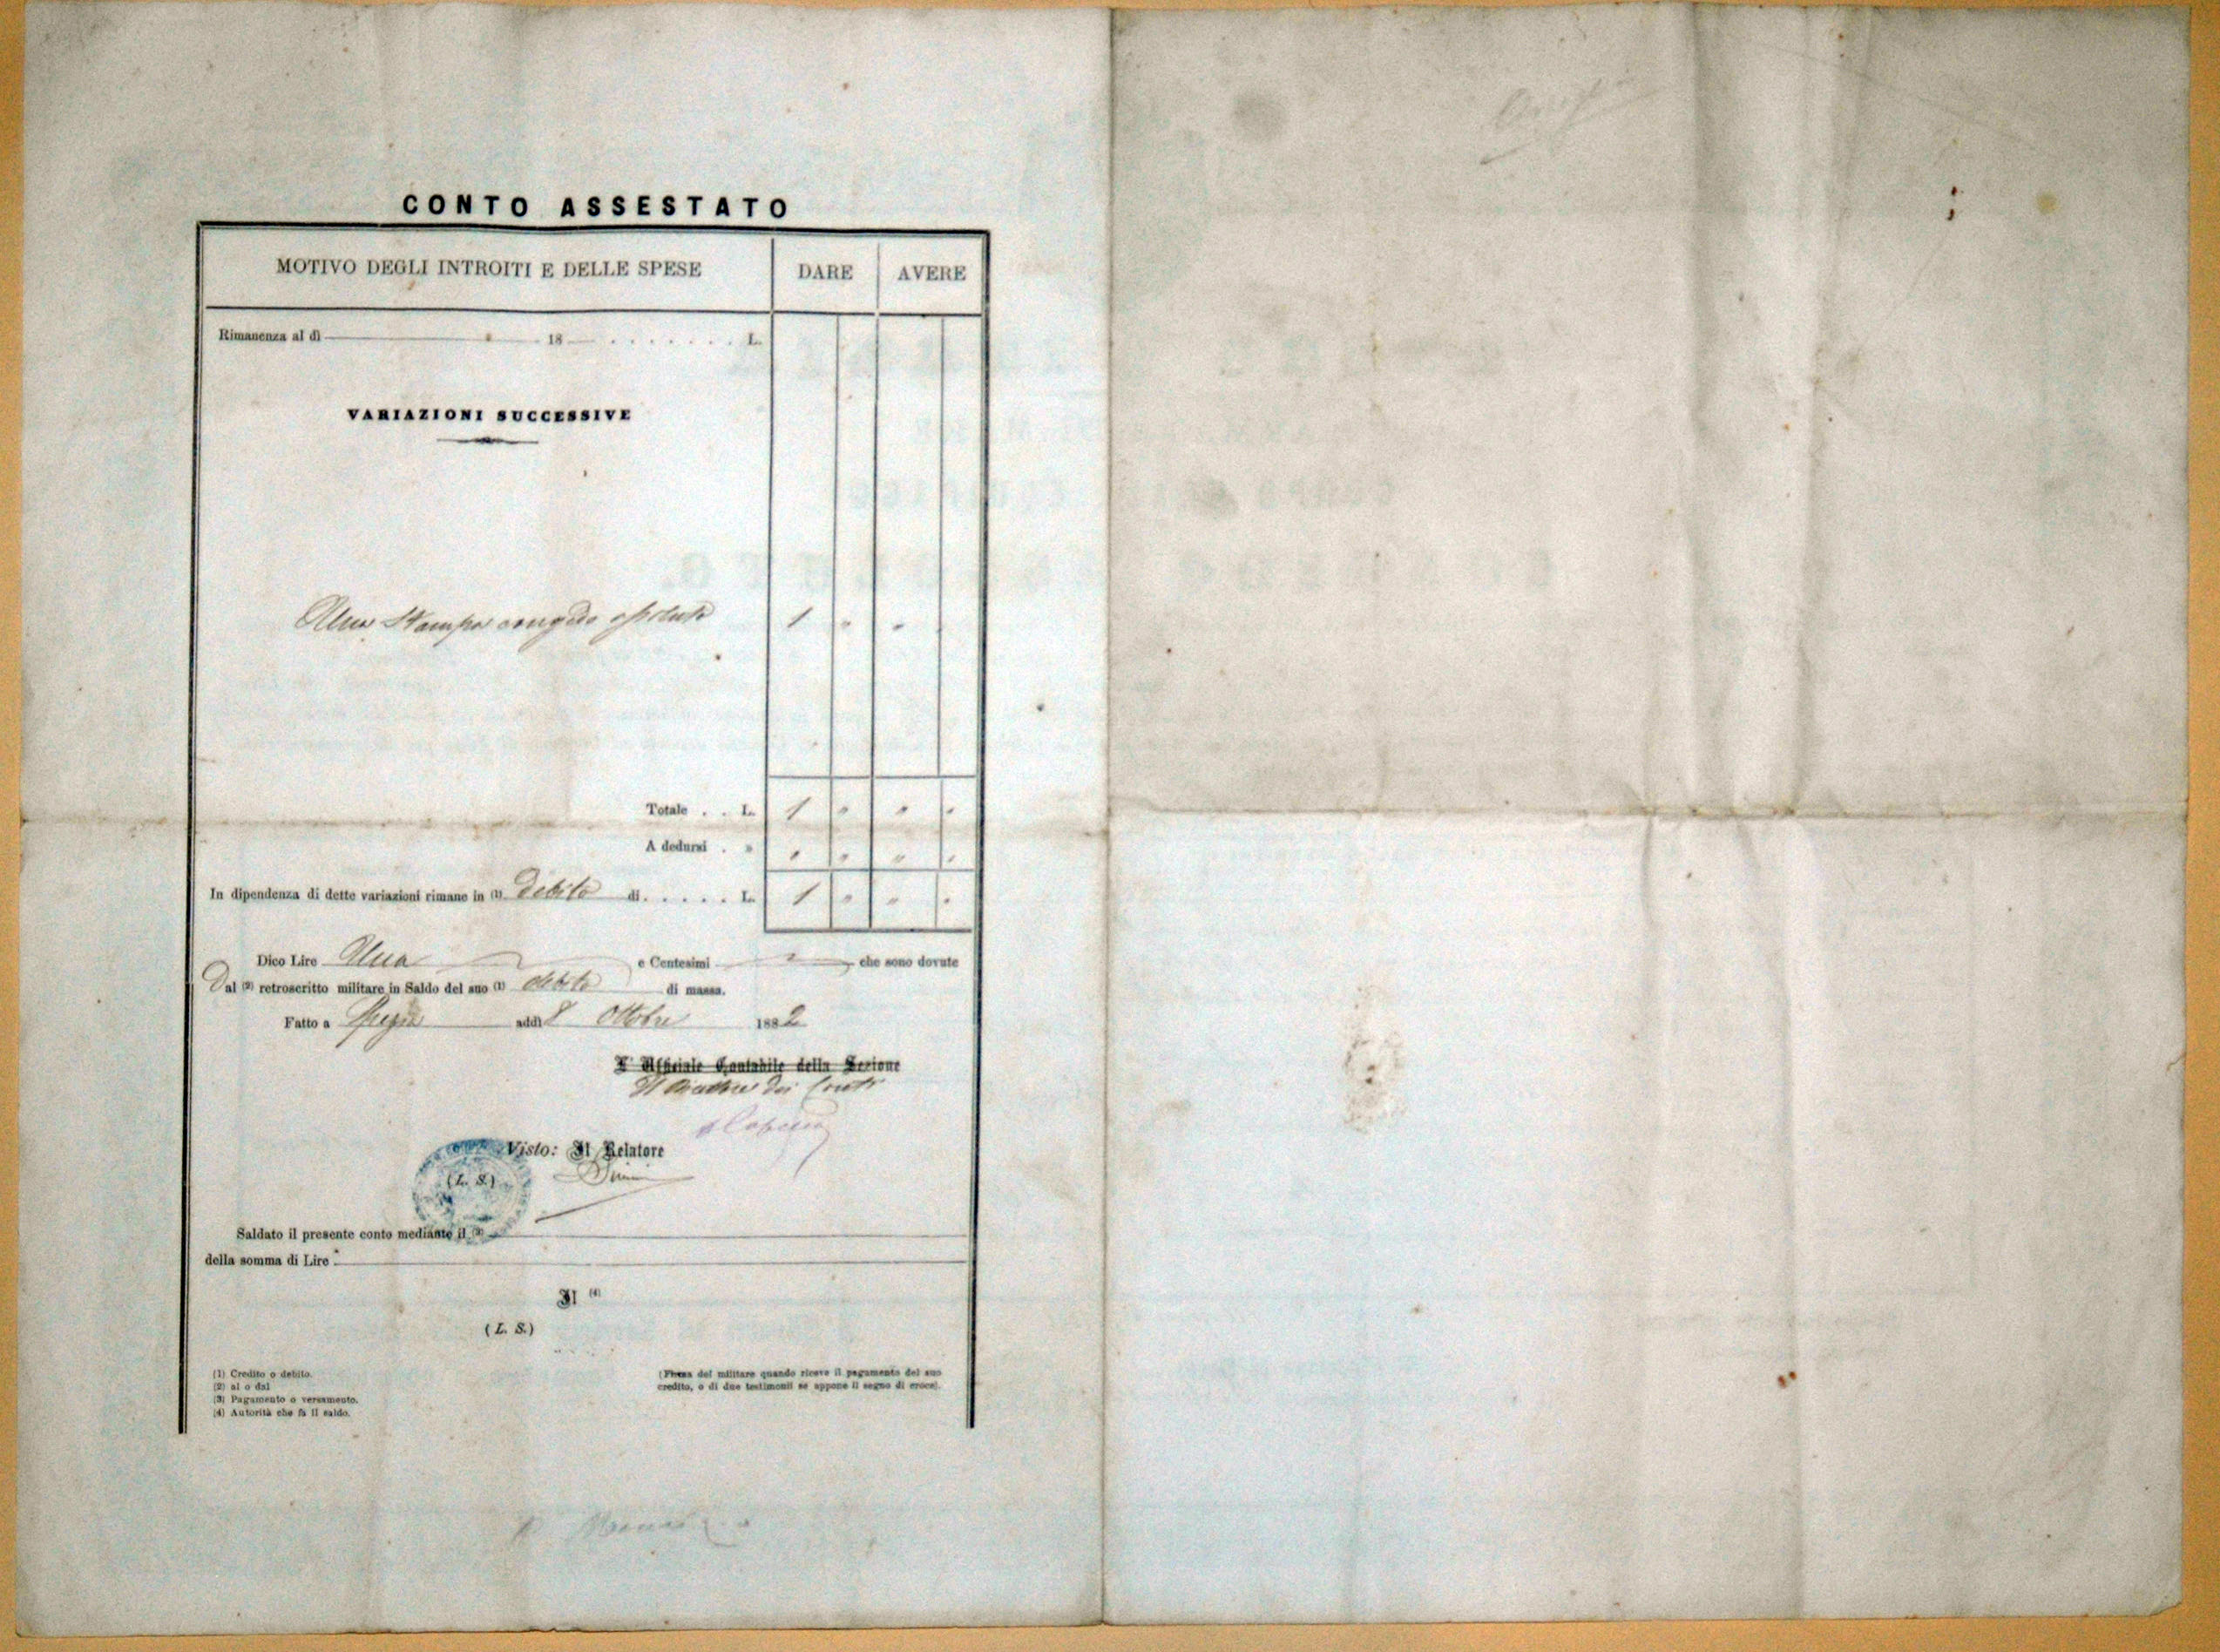 CONTO ASSESTATO
MOTIVO DEGLI INTROITI E DELLE SPESE DARE AVERE
Rimanenza al dì 18 . . . . . . . L.
VARIAZIONI SUCCESSIVE
Una Stampa congedo assoluto 1 " "
Totale . . L. 1 " " "
A dedursi . » " " " "
In dipendenza di dette variazioni rimane in (1) Debito di . . . . . L. 1 " " "
Dico Lire Una e Centesimi che sono dovute
Dal (2) retroscritto militare in Saldo del suo (1) debito di massa.
Fatto a Spezia addì 8 Ottobre 1882
L' Ufficiale Contabile della Sezione
Il dei Conti
Visto: Il Relatore
(L. S.)
Saldato il presente conto mediante il (3)
della somma di Lire
Il (4)
(L. S.)
(1) Credito o debito.
(2) al o dal
(3) Pagamento o versamento.
(4) Autorità che fa il saldo.
(Firma del militare quando riceve il pagamento del suo
credito, o di due testimonii se appone il segno di croce).